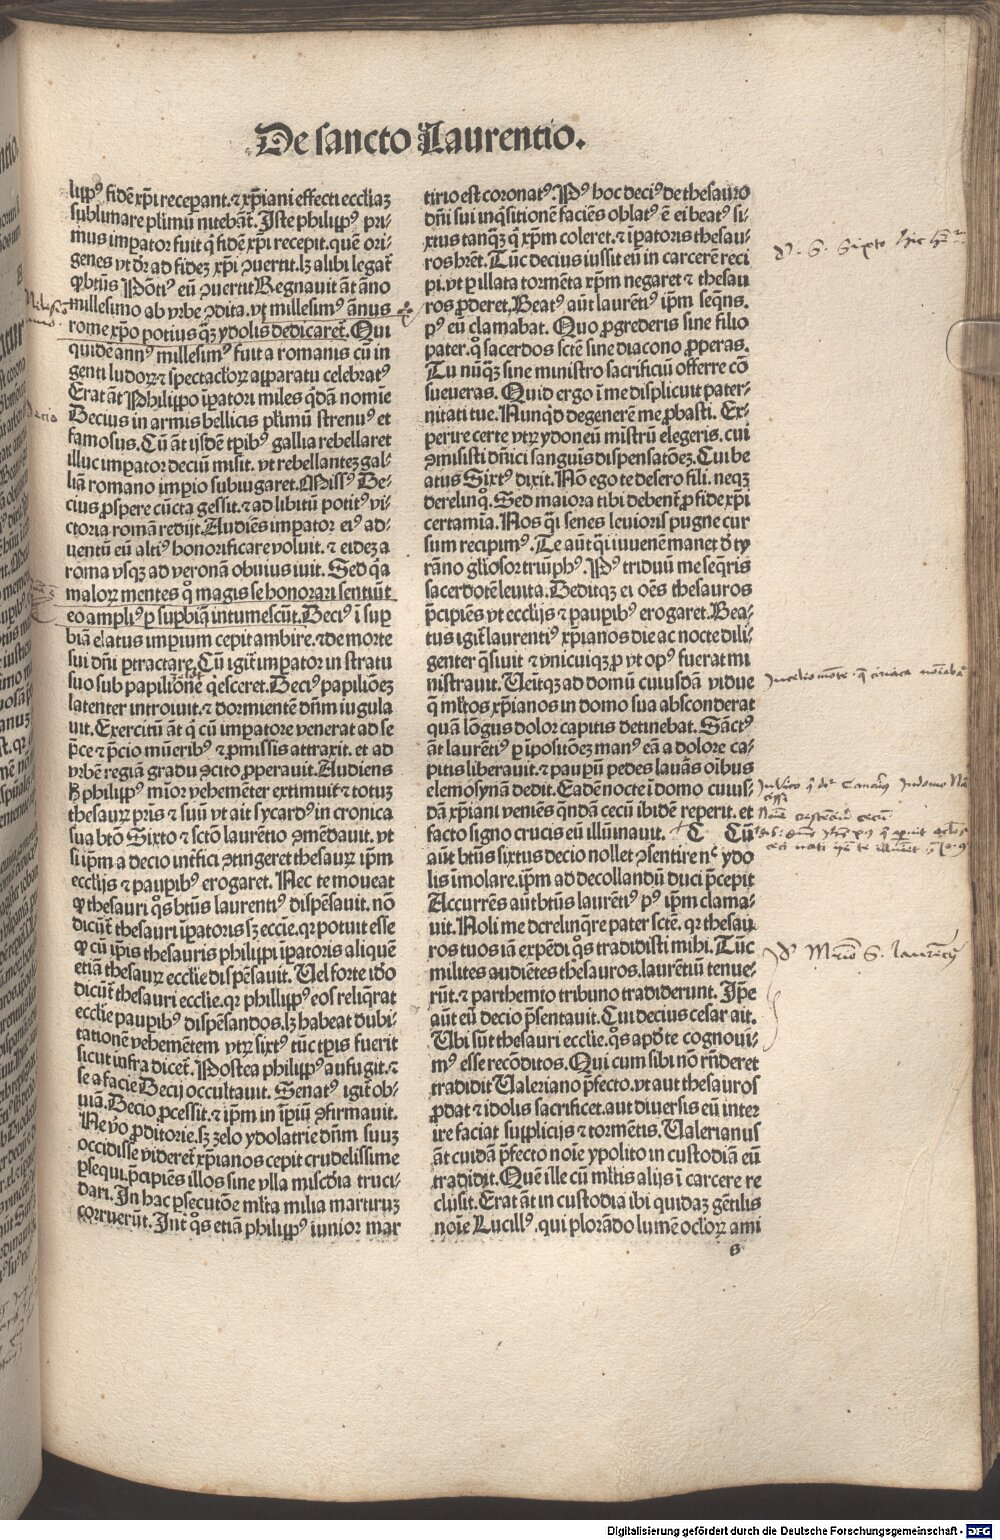 De sancto Laurentio.
lipp⁹ fidē xp̄i recepant. ⁊ xp̄iani effecti eccl̓iaꝫ
sublimare pl̓imū nitebāt̄. Iste philipp⁹ pri-
mus imꝑator fuit q̇ fidē xp̄i recepit. quē ori-
genes vt dr̄ ad fideꝫ xp̄i ꝯuertit. lꝫ alibi legat̄
ꝙ btūs Pōti⁹ eū ꝯuertit Regnauit āt āno
millesimo ab vrbe ꝯdita. vt millesim⁹ ānus
rome xp̄o potius qꝫ ydolis dedicaret̄. Qui
quidē ann⁹ millesim⁹ fuit a romanis cū in
genti ludoꝝ ⁊ spectacl̓oꝝ apparatu celebrat⁹
Erat āt Philippo īpatori miles q̇dā nomīe
Decius in armis bellicis pl̓imū strenu⁹ et
famosus. Cū āt ijsdē tꝑib⁹ gallia rebellaret
illuc imꝑator deciū misit. vt rebellanteꝫ gal-
liā romano imꝑio subiugaret. Miss⁹ De-
cius ꝓspere cūcta gessit. ⁊ ad libitū potit⁹ vi-
ctoria romā redijt. Audiēs imꝑator ei⁹ ad-
uentū eū alti⁹ honorificare voluit. ⁊ eideꝫ a
roma vsqꝫ ad veronā obuius iuit. Sed q̇a
maloꝝ mentes q̊ magis se honorari sentiūt
eo ampli⁹ ꝑ suꝑbiā intumescūt. Deci⁹ ī suꝑ
biā elatus imꝑium cepit ambire. ⁊ de morte
sui dn̄i ꝑtractare. Cū igit̄ imꝑator in stratu
suo sub papilione q̇esceret. Deci⁹ papilionēꝫ
latenter introiuit. ⁊ dormientē dn̄m iugula
uit. Exercitū āt q̇ cū imꝑatore venerat ad se
p̄ce ⁊ p̄cio mūerib⁹ ⁊ ꝓmissis attraxit. et ad
vrbē regiā gradu ꝯcito ꝓperauit. Audiens
ꝧ philipp⁹ mior vehemēter extimuit ⁊ totuꝫ
thesauꝝ pr̄is ⁊ suū vt ait sycard⁹ in cronica
sua btō Sixto ⁊ sctō laurētio ꝯmēdauit. vt
si ip̄m a decio int̓fici ꝯtingeret thesauꝝ ip̄m
eccl̓ijs ⁊ pauꝑib⁹ erogaret. Nec te moueat
ꝙ thesauri q̊s btūs laurenti⁹ dispēsauit. nō
dicūt̄ thesauri īꝑatoris sꝫ eccīe. qꝛ potuit esse
ꝙ cū ip̄is thesauris philippi īꝑatoris aliquē
etiā thesauꝝ eccl̓ie dispēsauit. Uel forte ido
dicūt̄ thesauri eccl̓ie. qꝛ phillipp⁹ eos reliq̇rat
eccl̓ie pauꝑib⁹ dispēsandos. lꝫ habeat dubi-
tationē vehemētem vtꝝ sixt⁹ tūc tꝑis fuerit
sicut infra dicet̄. Postea philipp⁹ aufugit. ⁊
se a facie Decij occultauit. Senat⁹ igit̄ ob-
uiā. Decio ꝓcessit. ⁊ ip̄m in īꝑiū ꝯfirmauit.
Ne v̊o ꝓditorie. sꝫ zelo ydolatrie dn̄m suuꝫ
occidisse videret̄ xp̄ianos cepit crudelissime
ꝑsequi. p̄cipiēs illos sine vlla mīscdīa truci-
dari. In hac ꝑsecutōe ml̓ta milia martiruꝫ
corruerūt. Int̓ q̊s etiā philipp⁹ iunior mar
tirio est coronat⁹. P⁹ hoc deci⁹ de thesauro
dn̄i sui inq̇sitionē faciēs oblat⁹ ē ei beat⁹ si-
xtus tanqꝫ q̇ xp̄m coleret. ⁊ īꝑatoris thesau-
ros hr̄et. Tūc decius iussit eū in carcerē reci
pi. vt ꝑ illata tormēta xp̄m negaret ⁊ thesau
ros ꝓderet. Beat⁹ aūt laurēti⁹ ip̄m seq̄ns.
p⁹ eū clamabat. Quo ꝓgrederis sine filio
pater. q̊ sacerdos sctē sine diacono ꝓperas.
Tu nūqꝫ sine ministro sacrificiū offerre cō
sueueras. Quid ergo ī me displicuit pater-
nitati tue. Nunqd degenerē me ꝓbasti. Ex-
ꝑire certe vtꝝ ydoneū mīstrū elegeris. cui
ꝯmisisti dn̄ici sanguis dispensatōeꝫ. Cui be
atus Sixt⁹ dixit. Nō ego te desero fili. neqꝫ
derelinq̊. Sed maiora tibi debent̄ ꝓ fide xp̄i
certamia. Nos q̇i senes leuioris pugne cur
sum recipim⁹. Te aūt q̇i iuuenē manet d̓ ty
rāno gl̓osior triūph⁹. P⁹ triduū me seq̄ris
sacerdotē leuita. Deditqꝫ ei oēs thesauros
p̄cipiēs vt eccl̓ijs ⁊ pauꝑib⁹ erogaret. Bea-
tus igit̄ laurenti⁹ xp̄ianos die ac nocte dili-
genter q̄siuit ⁊ vnicuiqꝫ ꝓ vt op⁹ fuerat mi
nistrauit. Ueītqꝫ ad domū cuiusdā vidue
q̄ ml̓tos xp̄ianos in domo sua absconderat
quā lōgus dolor capitis detinebat. Sāct⁹
āt laurēti⁹ ꝑ īpositōeꝫ man⁹ eā a dolore ca-
pitis liberauit. ⁊ pauꝑū pedes lauās oībus
elemosynā dedit. Eadē nocte ī domo cuius-
dā xp̄iani veniēs q̄ndā cecū ibidē reperit. et
facto signo crucis eū illūinauit. C Cū
aūt btūs sixtus decio nollet ꝯsentire nᶜ ydo
lis īmolare. ip̄m ad decollandū duci p̄cepit
Accurrēs aūt btūs laurēti⁹ p⁹ ip̄m clama-
uit. Noli me derelinq̄re pater sctē. qꝛ thesau
ros tuos iā expēdi q̊s tradidisti mihi. Tūc
milites audiētes thesauros. laurētiū tenue-
rūt. ⁊ parthemio tribuno tradiderunt. Ip̄e
aūt eū decio p̄sentauit. Cui decius cesar ait.
Ubi sūt thesauri eccl̓ie. q̊s apd̓ te cognoui-
m⁹ esse recōditos. Qui cum sibi nō rn̄deret
tradidit Ualeriano p̄fecto. vt aut thesauros
ꝓdat ⁊ idolis sacrificet. aut diuersis eū inter
ire faciat supplicijs ⁊ tormētis. Ualerianus
āt cuidā p̄fecto noīe ypolito in custodiā eū
tradidit. Quē ille cū ml̓tis alijs ī carcere re
clusit. Erat āt in custodia ibi quidaꝫ gētilis
noīe Lucill⁹. qui plorādo lumē ocl̓oꝝ ami
s
Digitalisierung gefördert durch die Deutsche Forschungsgemeinschaft - DFG